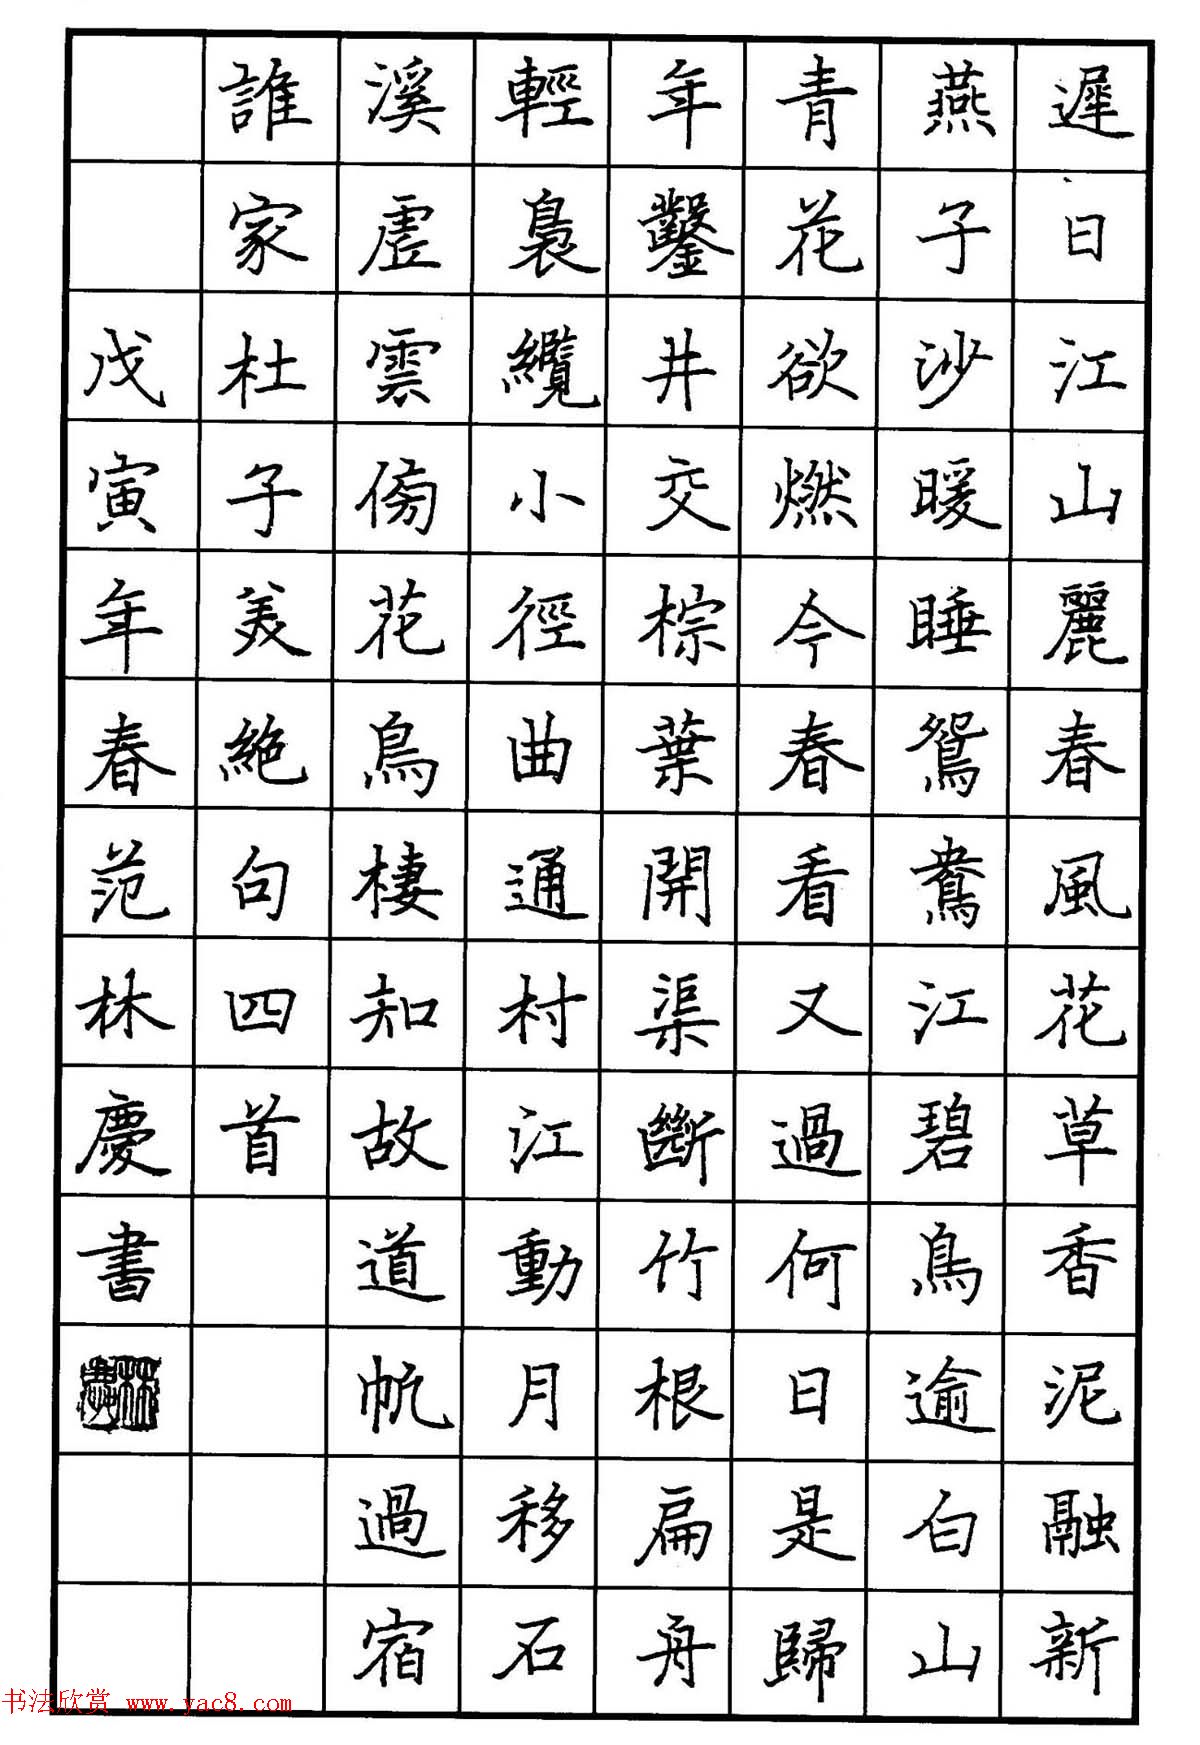 遲日江山麗春風花草香泥融新
燕子沙暖睡鴛鴦江碧鳥逾白山
青花欲燃今春看又過何日是歸
年鑿井交棕葉開渠斷竹根扁舟
輕裊纜小徑曲通村江動月移石
溪虛雲傍花鳥棲知故道帆過宿
誰家杜子美絕句四首
戊寅年春范林慶書
林慶
书法欣赏 www.yac8.com